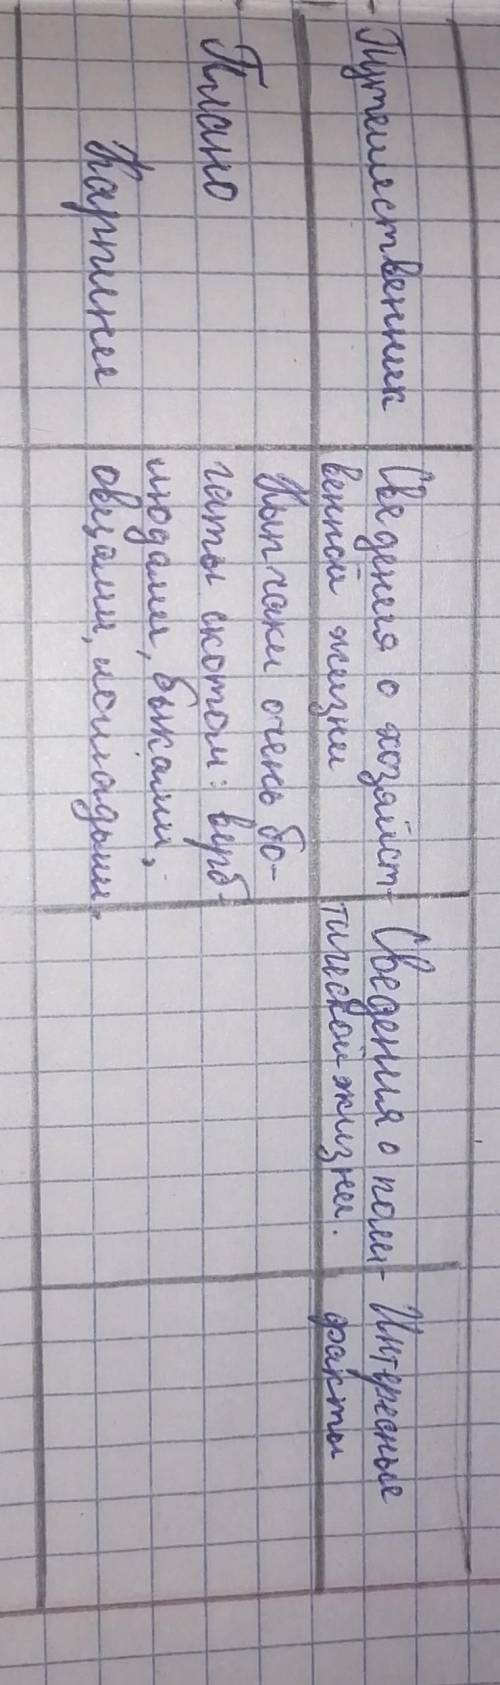 Путешественник
Сведения о хозяйст-
венной жизни
Сведения о поли-
тической жизни.
Интересные
факты
Плано
Карпини
Кыпчаки очень бо-
гаты скотом: верб-
людами, быками,
овцами, лошадьми.